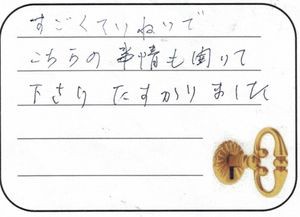 すごくていねいで
こちらの事情も聞いて
下さり たすかりました